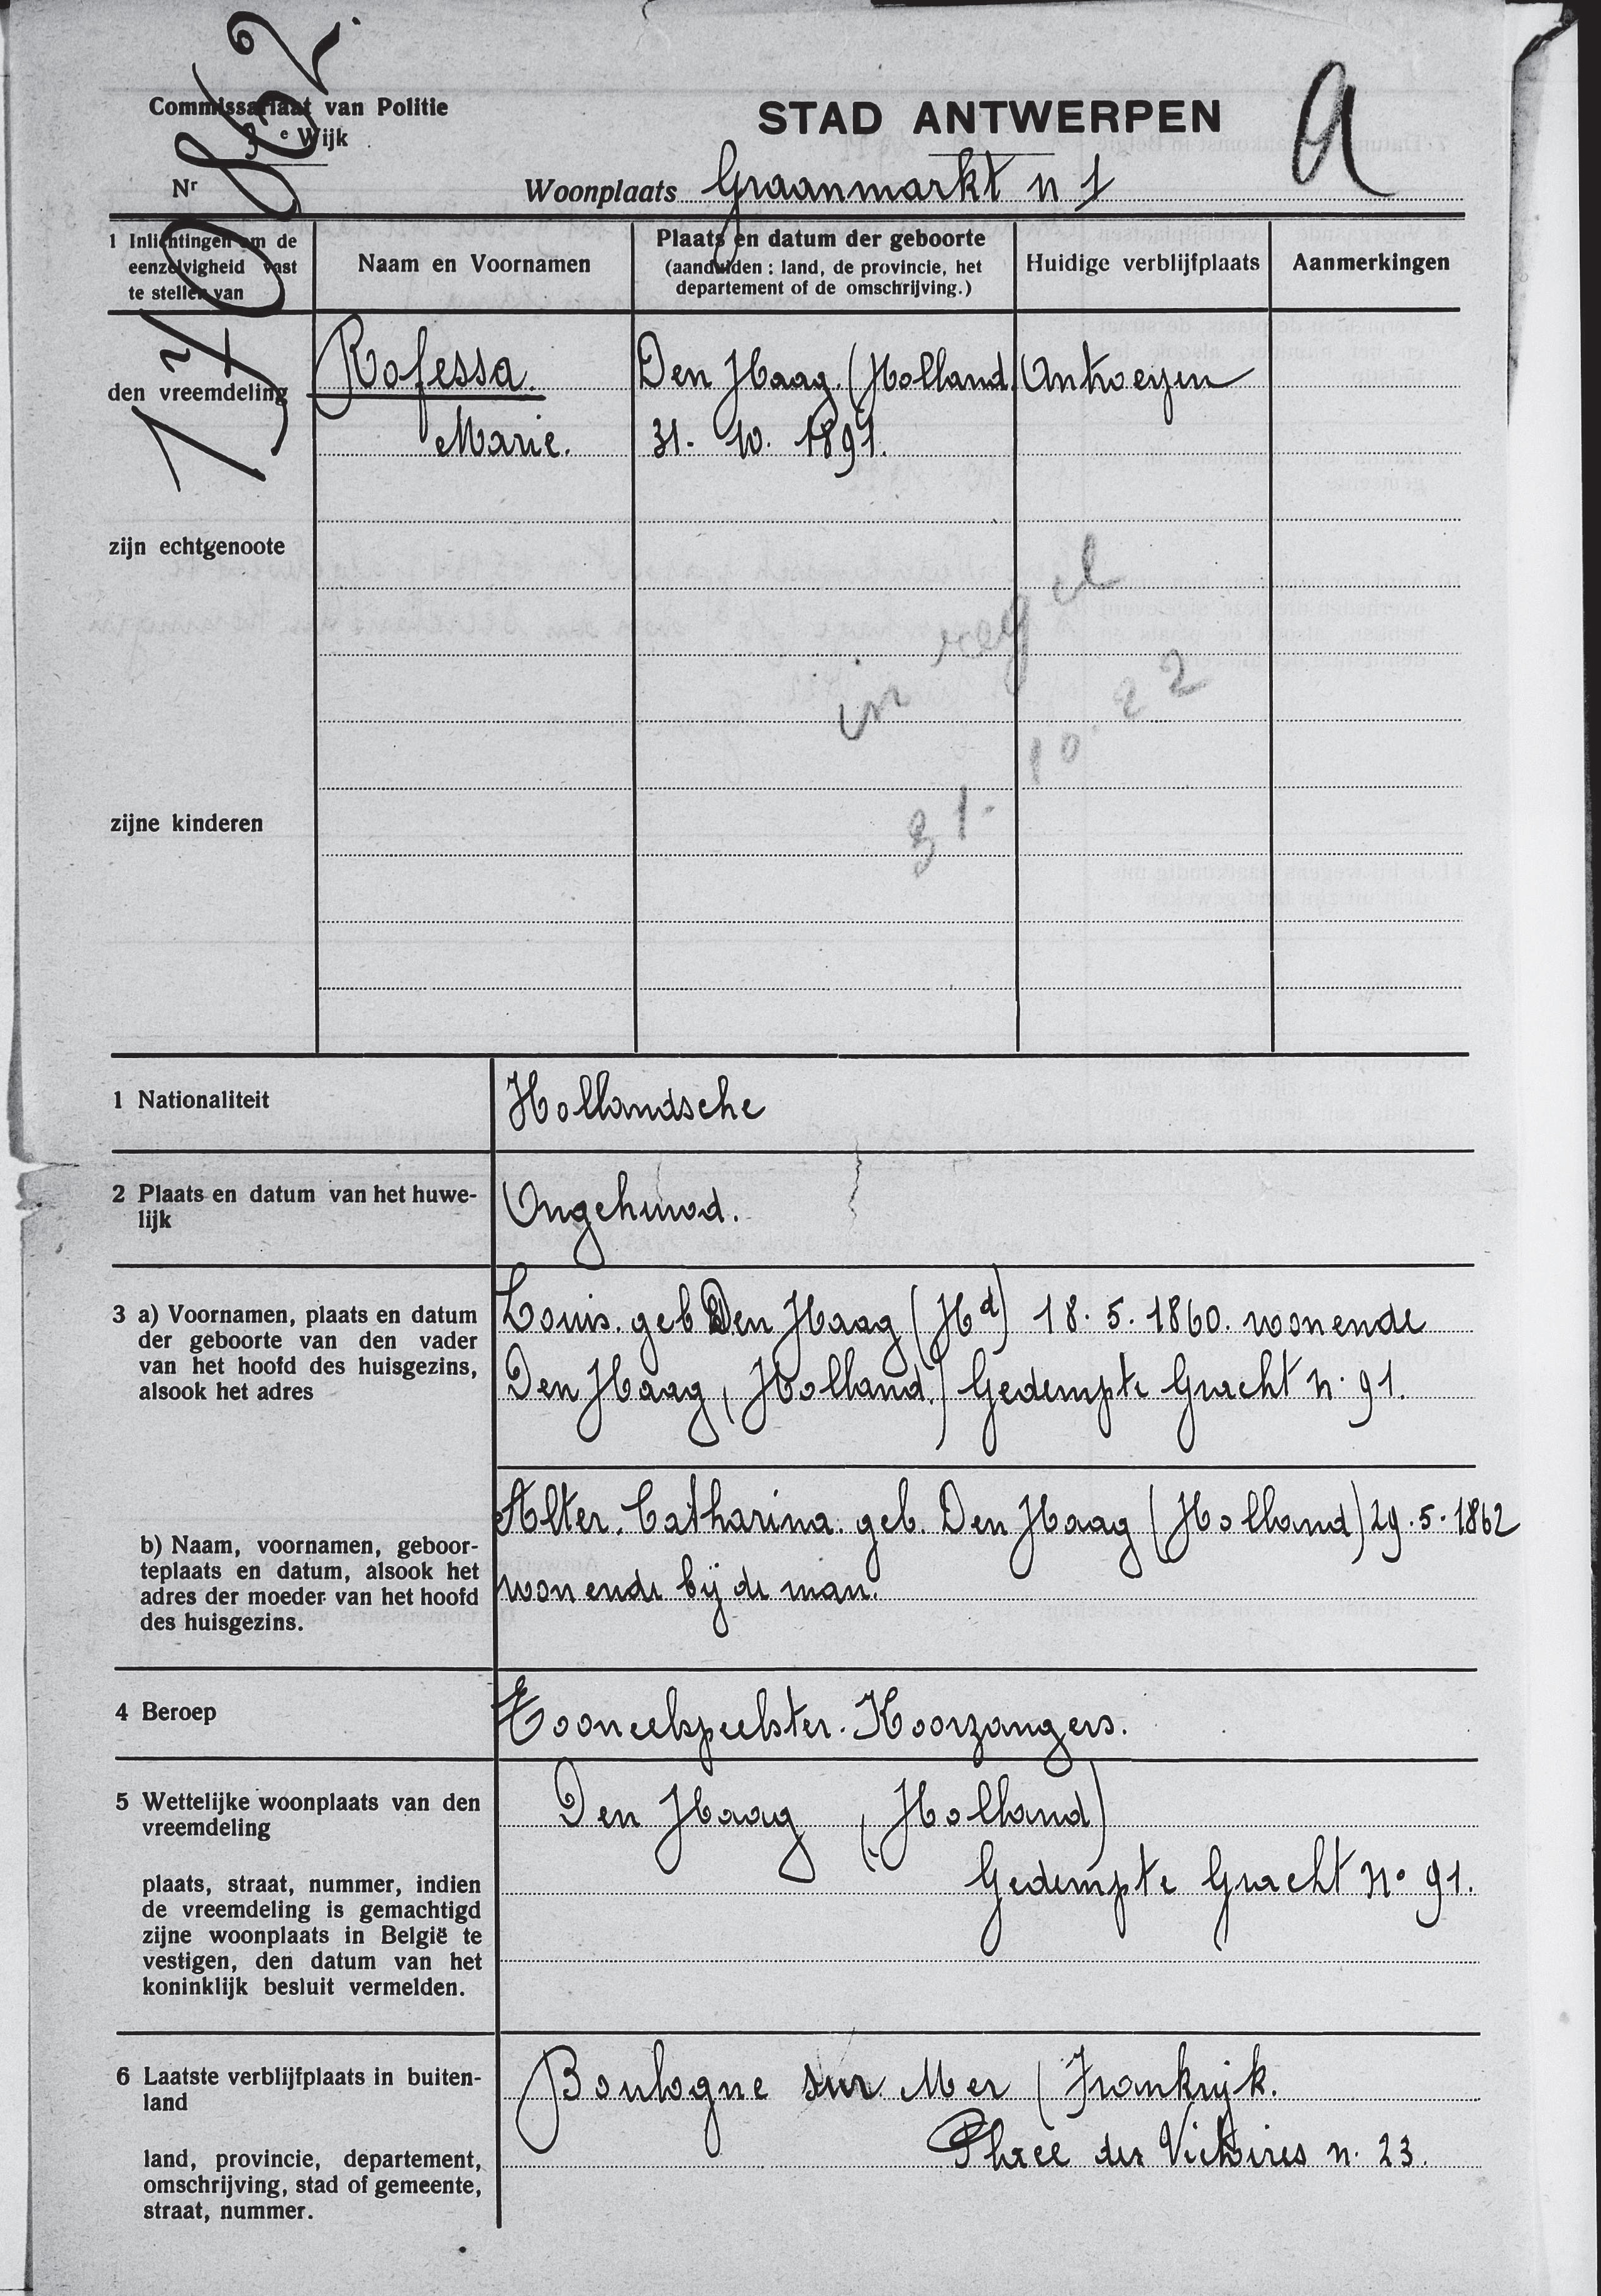 Commissariaat van Politie
3e Wijk
Nr
170862.
STAD ANTWERPEN
a
Woonplaats Graanmarkt n 1
1 Inlichtingen om de
eenzelvigheid vast
te stellen van
Naam en Voornamen
Plaats en datum der geboorte
(aanduiden : land, de provincie, het
departement of de omschrijving.)
Huidige verblijfplaats
Aanmerkingen
den vreemdeling
Rofessa. Den Haag. (Holland. Antwerpen
Marie. 31. 10. 1891.
zijn echtgenoote
in regel
31. 10. 22
zijne kinderen
1 Nationaliteit
Hollandsche
2 Plaats en datum van het huwe-
lijk
Ongehuwd.
3 a) Voornamen, plaats en datum
der geboorte van den vader
van het hoofd des huisgezins,
alsook het adres
Louis. geb Den Haag (Hd) 18. 5. 1860. wonende
Den Haag (Holland.) Gedempte Gracht n. 91.
b) Naam, voornamen, geboor-
teplaats en datum, alsook het
adres der moeder van het hoofd
des huisgezins.
Alter. Catharina. geb. Den Haag (Holland) 29. 5. 1862
wonende bij de man.
4 Beroep
Tooneelspeelster. Koorzangers.
5 Wettelijke woonplaats van den
vreemdeling
plaats, straat, nummer, indien
de vreemdeling is gemachtigd
zijne woonplaats in België te
vestigen, den datum van het
koninklijk besluit vermelden.
Den Haag (Holland)
Gedempte Gracht No 91.
6 Laatste verblijfplaats in buiten-
land
land, provincie, departement,
omschrijving, stad of gemeente,
straat, nummer.
Boulogne sur Mer (Frankrijk.
Place des Victoires n. 23.